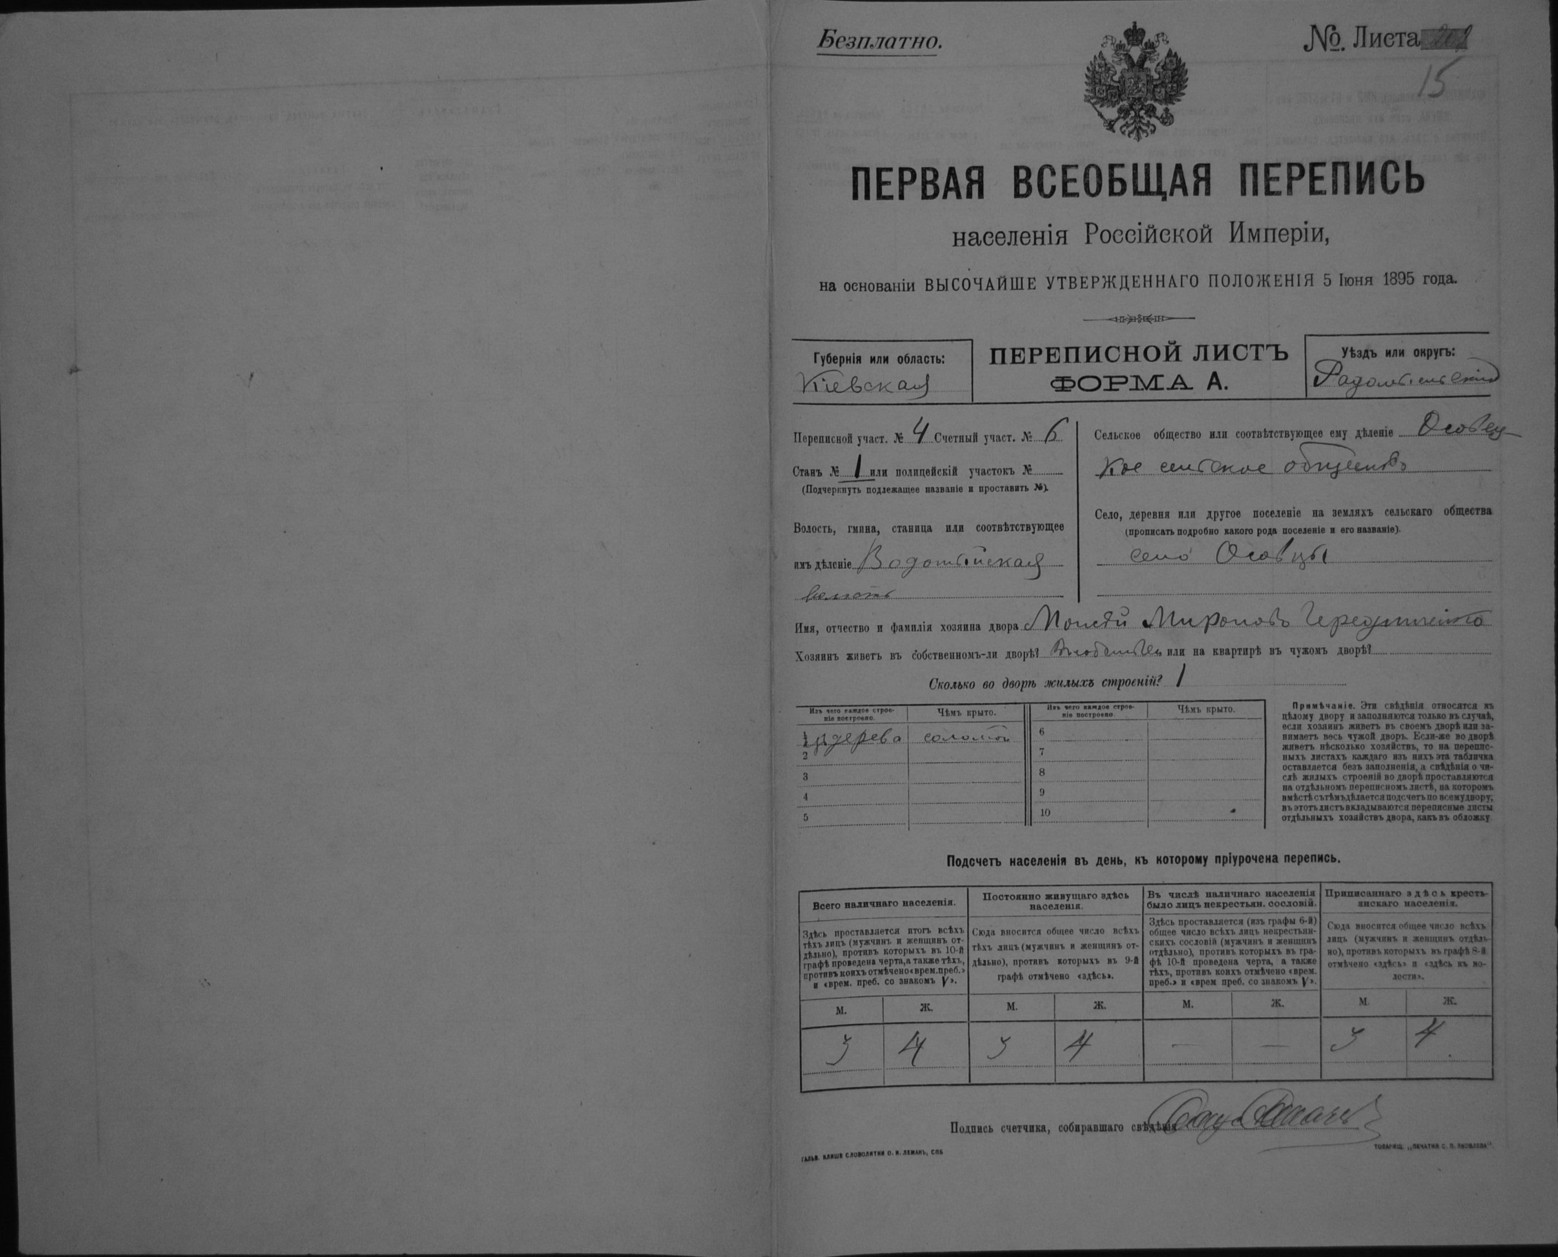 Безплатно.
№ Листа
15
ПЕРВАЯ ВСЕОБЩАЯ ПЕРЕПИСЬ
населенія Россійской Имперіи,
на основаніи ВЫСОЧАЙШЕ УТВЕРЖДЕННАГО ПОЛОЖЕНІЯ 5 Іюня 1895 года.
Губернія или область:
Кіевская
ПЕРЕПИСНОЙ ЛИСТЪ
ФОРМА А.
Уѣздъ или округъ:
Радомысльскій
Переписной участ. № 4 Счетный участ. № 6
Станъ № 1 или полицейскій участокъ №
(Подчеркнуть подлежащее названіе и проставить №).
Волость, гмина, станица или соотвѣтствующее
имъ дѣленіе Водотыйская
волость
Сельское общество или соотвѣтствующее ему дѣленіе Осовец
кое сельское общество
Село, деревня или другое поселеніе на земляхъ сельскаго общества
(прописать подробно какого рода поселеніе и его названіе).
село Осовцы
Имя, отчество и фамилія хозяина двора Моисей Мироновъ
Хозяинъ живетъ въ собственномъ-ли дворѣ? или на квартирѣ въ чужомъ дворѣ?
Сколько во дворѣ жилыхъ строеній? 1
Изъ чего каждое строе-
ніе построено.
Чѣмъ крыто.
Изъ чего каждое строе-
ніе построено.
Чѣмъ крыто.
1 дерева соломой
2
3
4
5
6
7
8
9
10
Примѣчаніе. Эти свѣдѣнія относятся къ
цѣлому двору и заполняются только въ случаѣ,
если хозяинъ живетъ въ своемъ дворѣ или за-
нимаетъ весь чужой дворъ. Если-же во дворѣ
живетъ нѣсколько хозяйствъ, то на перепис-
ныхъ листахъ каждаго изъ нихъ эта табличка
оставляется безъ заполненія, а свѣдѣнія о чи-
слѣ жилыхъ строеній во дворѣ проставляются
на отдѣльномъ переписномъ листѣ, на которомъ
вмѣстѣ съ тѣмъ дѣлается подсчетъ по всему двору;
въ этотъ листъ вкладываются переписные листы
отдѣльныхъ хозяйствъ двора, какъ въ обложку.
Подсчетъ населенія въ день, къ которому пріурочена перепись.
Всего наличнаго населенія.
Здѣсь проставляется итогъ всѣхъ
тѣхъ лицъ (мужчинъ и женщинъ от-
дѣльно), противъ которыхъ въ 10-й
графѣ проведена черта, а также тѣхъ,
противъ коихъ отмѣчено «врем. преб.»
и «врем. преб. со знакомъ V».
Постоянно живущаго здѣсь
населенія.
Сюда вносится общее число всѣхъ
тѣхъ лицъ (мужчинъ и женщинъ от-
дѣльно), противъ которыхъ въ 9-й
графѣ отмѣчено «здѣсь».
Въ числѣ наличнаго населенія
было лицъ некрестьян. сословій.
Здѣсь проставляется (изъ графы 6-й)
общее число всѣхъ лицъ некрестьян-
скихъ сословій (мужчинъ и женщинъ
отдѣльно), противъ которыхъ въ гра-
фѣ 10-й проведена черта, а также
тѣхъ, противъ коихъ отмѣчено «врем.
преб.» и «врем преб. со знакомъ V».
Приписаннаго здѣсь кресть-
янскаго населенія.
Сюда вносится общее число всѣхъ
лицъ (мужчинъ и женщинъ отдѣль-
но), противъ которыхъ въ графѣ 8-й
отмѣчено «здѣсь» и «здѣсь къ во-
лости».
М. Ж. М. Ж. М. Ж. М. Ж.
3 4 3 4 — — 3 4
Подпись счетчика, собиравшаго свѣдѣнія
ГАЛЬВ. КЛИШЕ СЛОВОЛИТНИ О. И. ЛЕМАНЪ, СПБ
ТОВАРИЩ. „ПЕЧАТНЯ С. П. ЯКОВЛЕВА“.